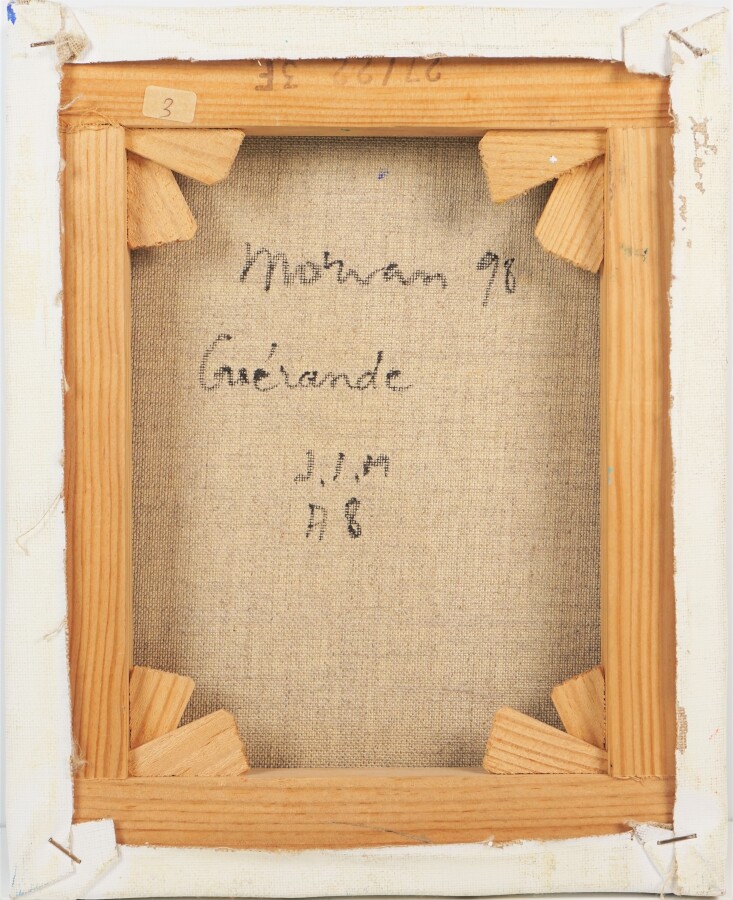 27/22 3F
3
Morvan 98
Guérande
J.J.M
A 8